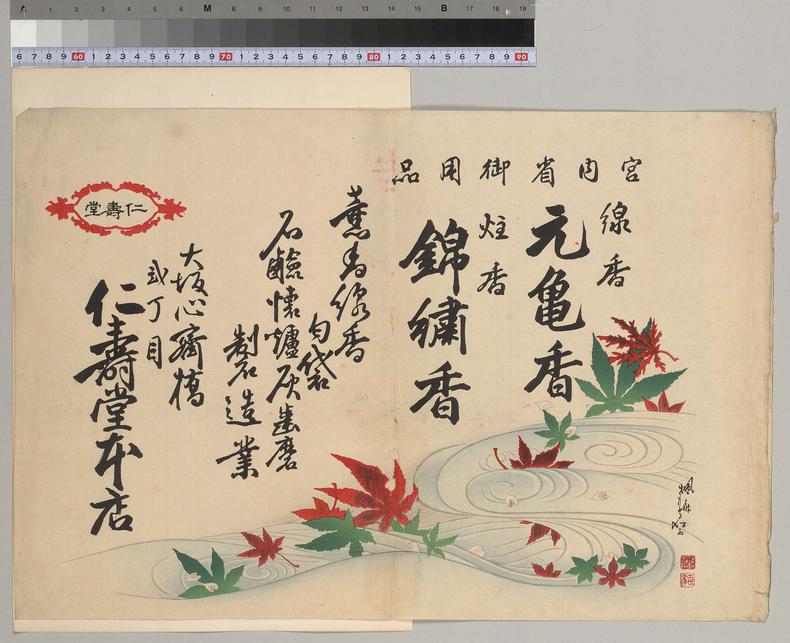 宮内省御用品
線香
元亀香
炷香
錦繡香
薫香線香
匂袋
石鹼懐爐灰歯磨
製造業
大坂心齋橋
弐丁目
仁壽堂本店
仁壽堂
A 1 2 3 4 5 6 M 8 9 10 11 12 13 14 15 B 17 18 19
6 7 8 9 60 1 2 3 4 5 6 7 8 9 70 1 2 3 4 5 6 7 8 9 80 1 2 3 4 5 6 7 8 9 90